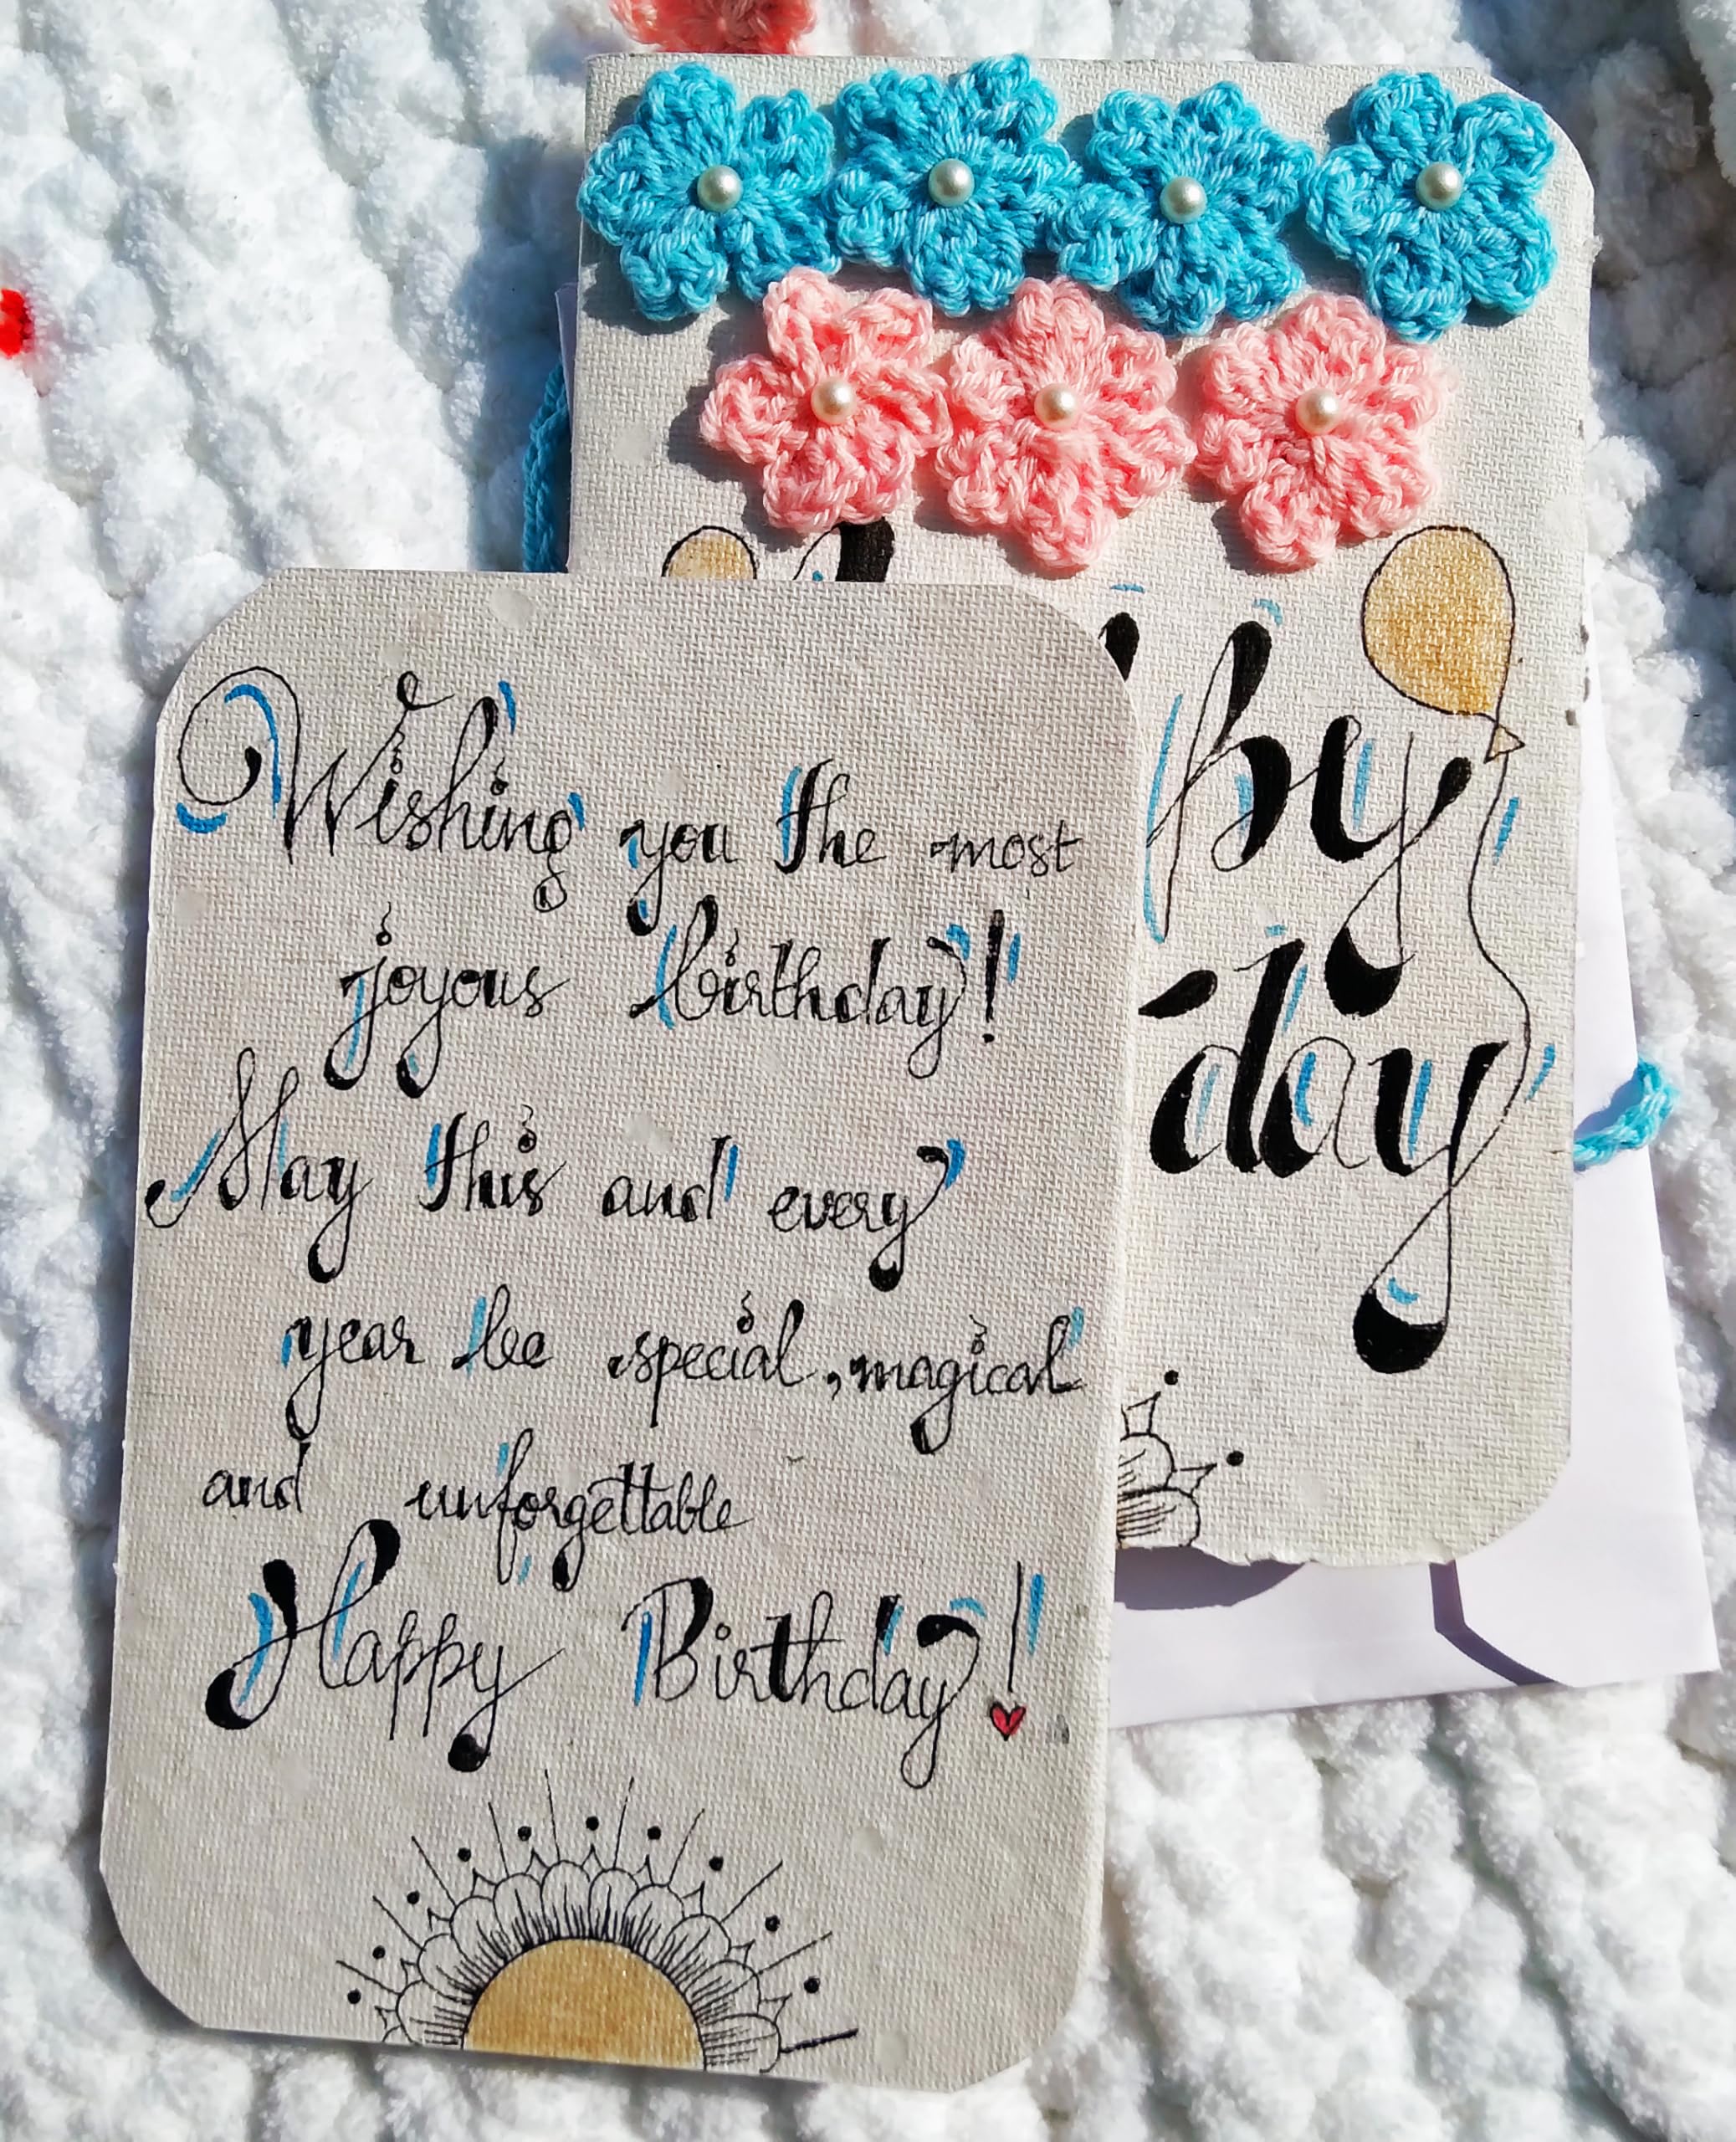 Wishing you the most
joyous birthday!
May this and every
year be special, magical
and unforgettable
Happy Birthday!
day